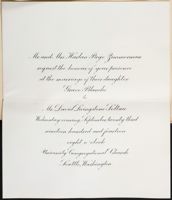 Mr. and Mrs. Harlan Page Zimmerman
request the honour of your presence
at the marriage of their daughter
Grace Blanche
to
Mr. David Livingstone
Wednesday evening, September twenty third
nineteen hundred and
eight o'clock
University Congregational Church
Seattle, Washington